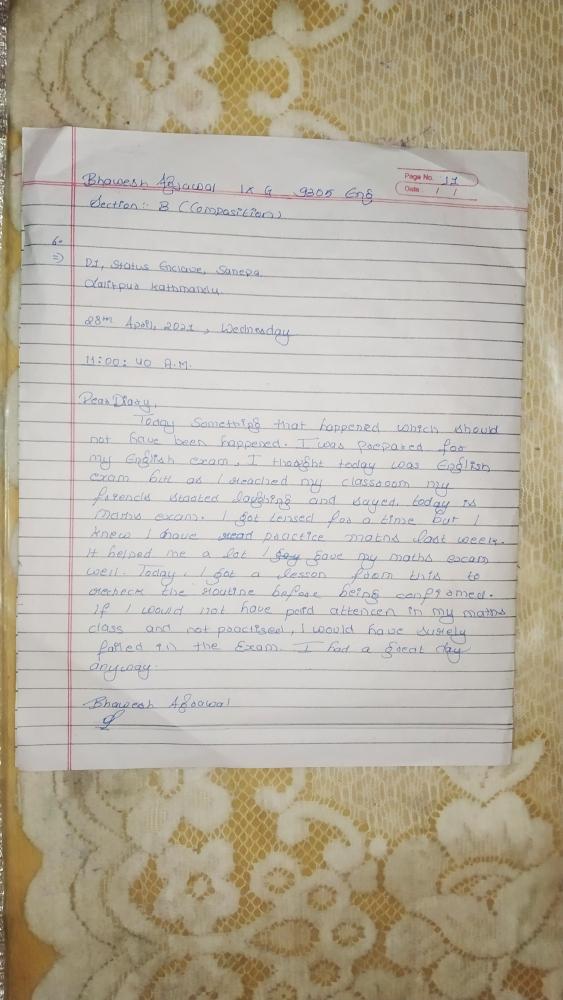 Bhawesh Agrawal IX G 9305 Eng
Page No. 11
Date / /
Section:- B (Composition)
6.
=>
D1, Status Enclave, Sanepa
Lalitpur Kathmandu
28th April, 2021, Wednesday
11:00:40 A.M.
Dear Diary,
Today something that happened which should
not have been happened. I was prepared for
my English exam, I thought today was English
exam but as I reached my classroom my
friends started laughing and sayed, today is
maths exam. I got tensed for a time but I
knew I have read practice maths last week.
It helped me a lot I gave my maths exam
well. Today, I got a lesson from this to
recheck the routine before being confromed.
If I would not have paid attencen in my maths
class and not practised, I would have surely
failed in the Exam. I had a great day
anyway.
Bhawesh Agrawal